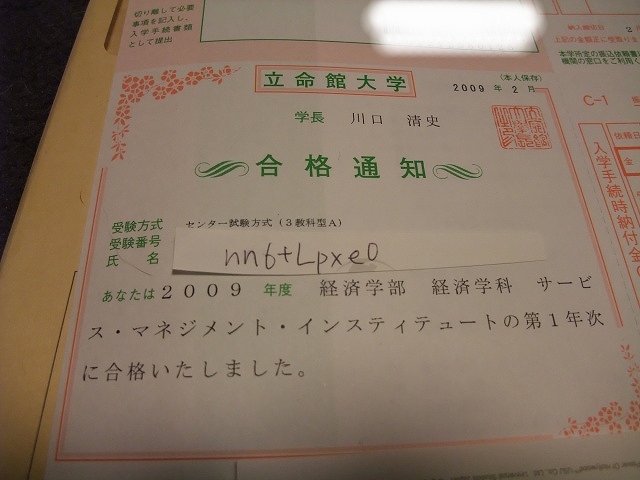 切り離して必要
事項を記入し、
入学手続書類
として提出
立命館大学
(本人保存)
2009 年 2 月
学長 川口 清史
合格通知
受験方式 センター試験方式(3教科型A)
受験番号
氏 名
nn6+Lpxe0
あなたは2009 年度 経済学部 経済学科 サービ
ス・マネジメント・インスティテュートの第1年次
に合格いたしました。
納入締切日
上記の金額正に受取り
本学所定の振込依頼書
機関の窓口をご利用く
C-1
依頼日
金
入学手続時納付金